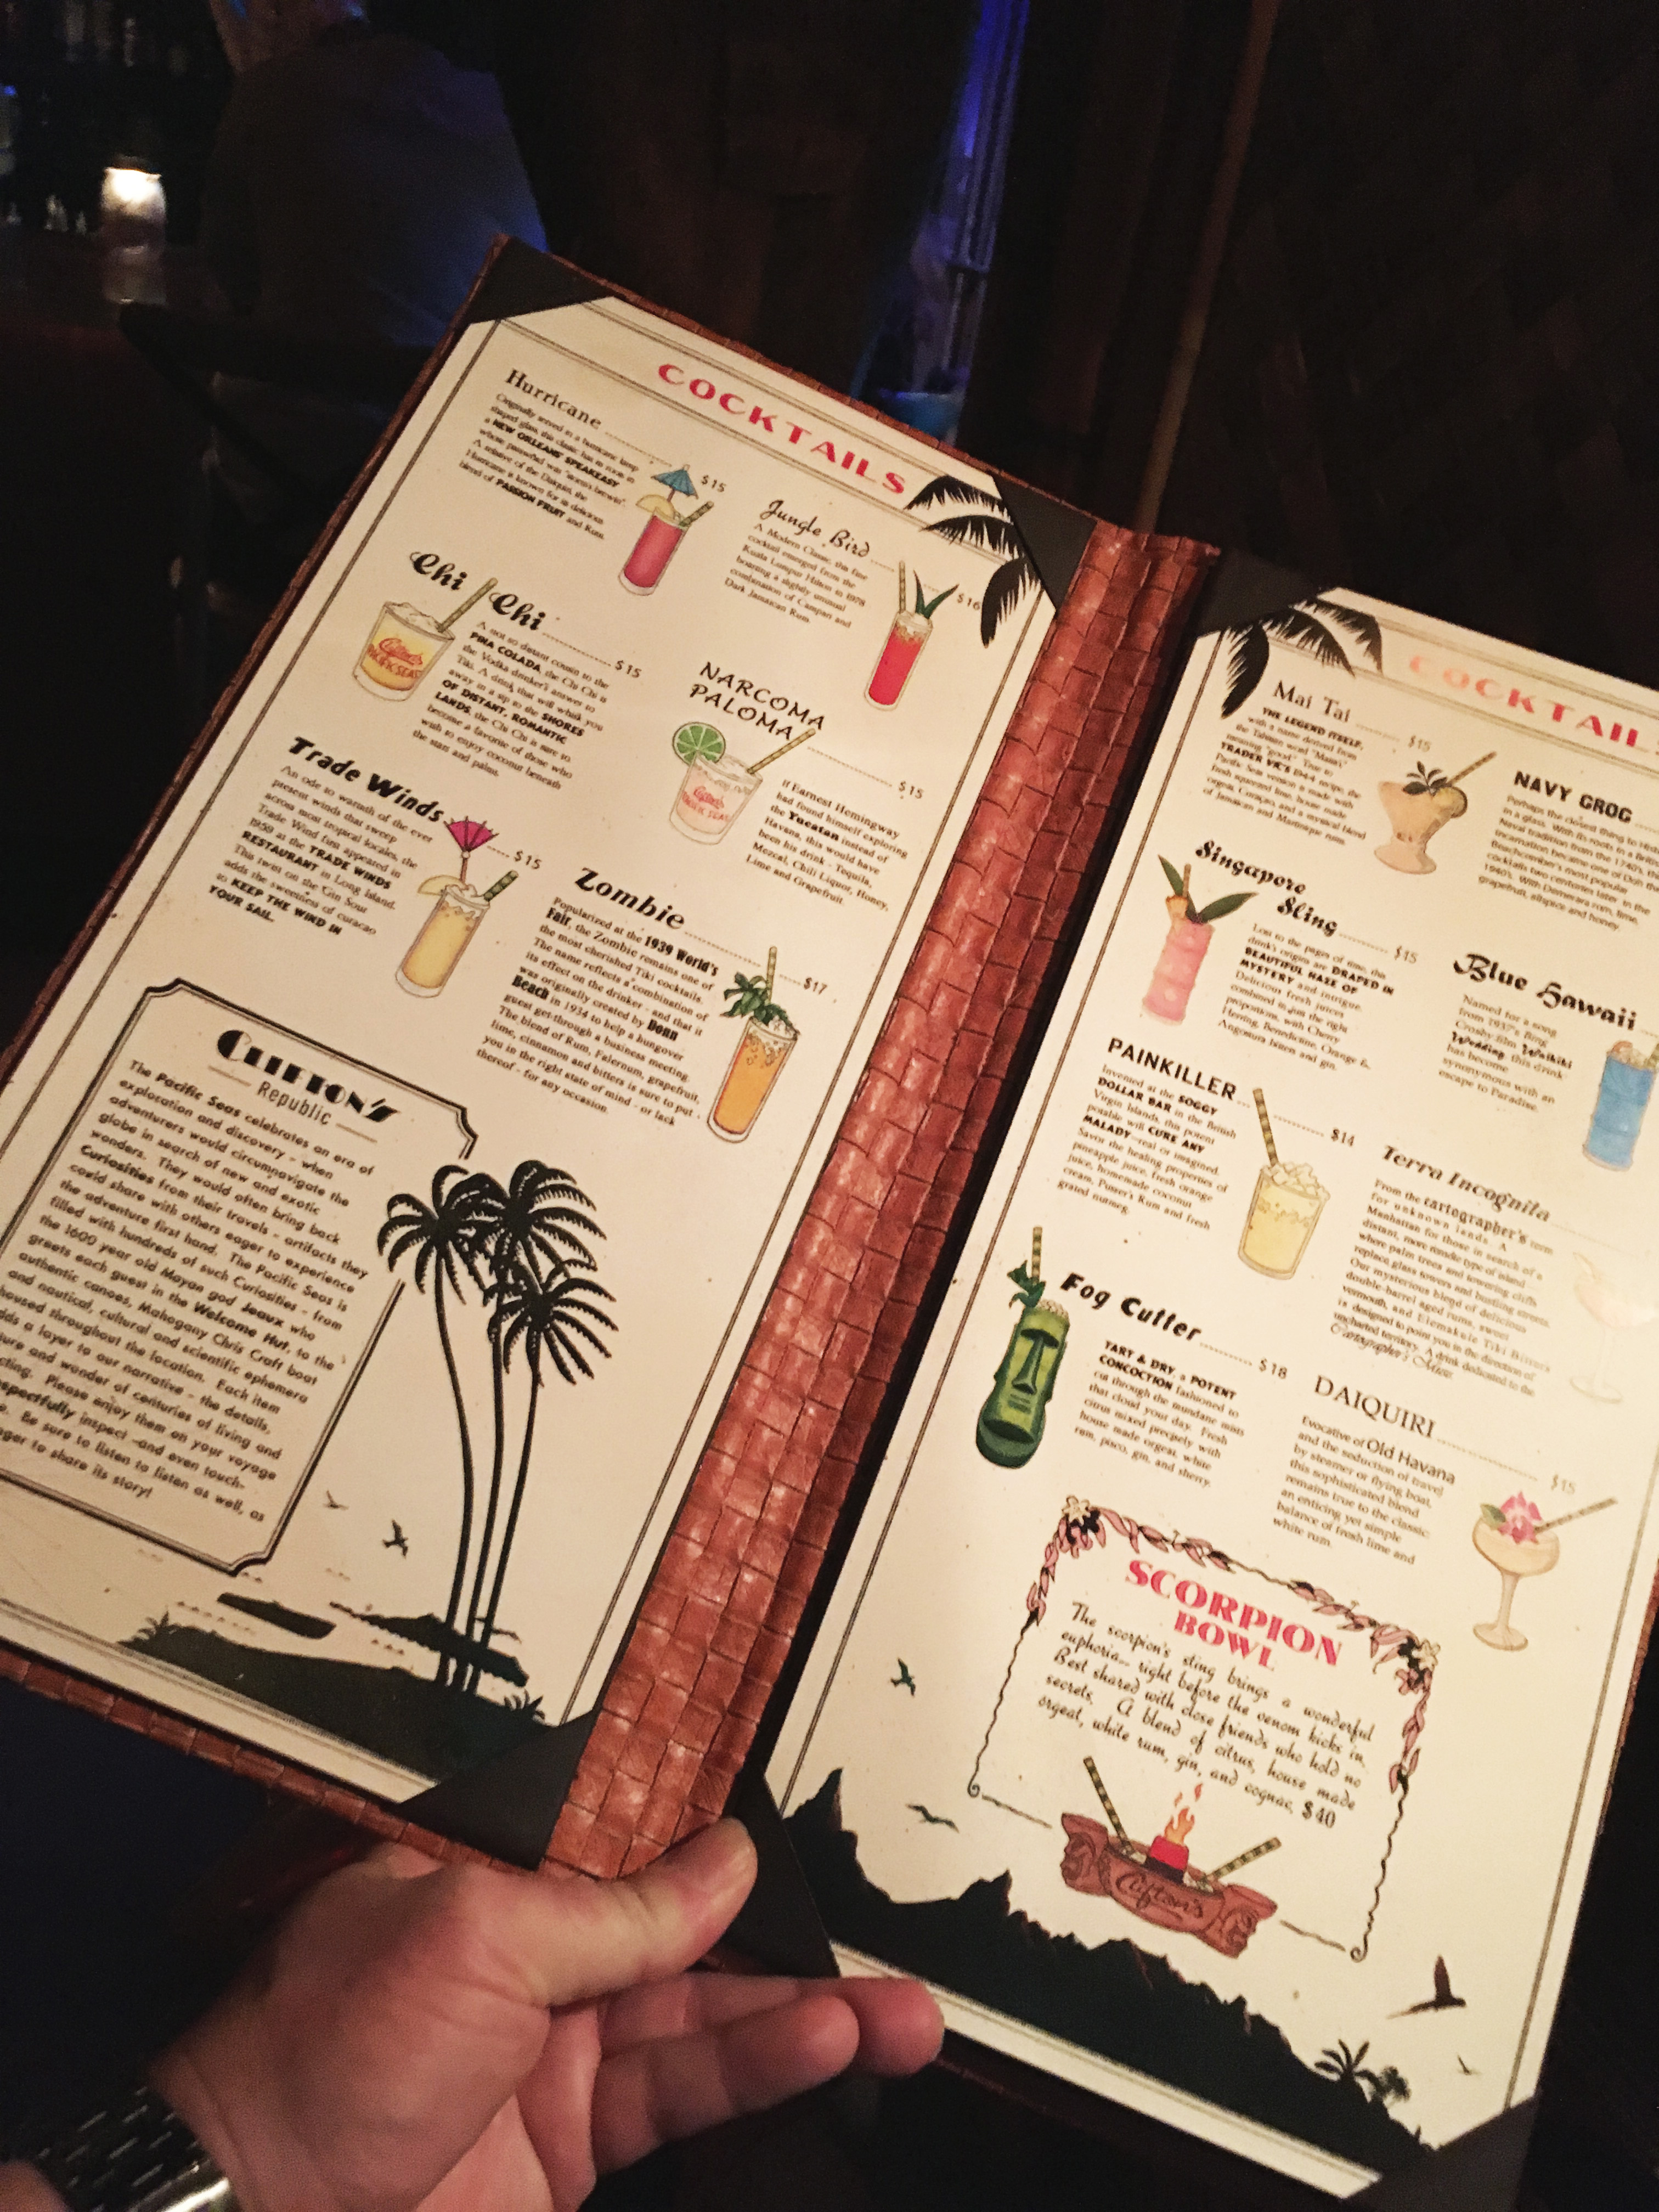 COCKTAILS
Hurricane $15
Originally served in a hurricane lamp
shaped glass, this classic has its roots in
a NEW ORLEANS' SPEAKEASY
whose password was "storm's brewin'".
A relative of the Daiquiri, the
Hurricane is known for its delicious
blend of PASSION FRUIT and Rum.
Jungle Bird $16
A Modern Classic, this fine
cocktail emerged from the
Kuala Lumpur Hilton in 1978
boasting a slightly unusual
combination of Campari and
Dark Jamaican Rum.
Chi Chi $15
A not so distant cousin to the
PINA COLADA, the Chi Chi is
the Vodka drinker's answer to
Tiki. A drink that will whisk you
away in a sip to the SHORES
OF DISTANT, ROMANTIC
LANDS, the Chi Chi is sure to
become a favorite of those who
wish to enjoy coconut beneath
the stars and palms.
Clifton's
PACIFIC SEAS
NARCOMA
PALOMA $15
If Earnest Hemingway
had found himself exploring
the Yucatan instead of
Havana, this would have
been his drink - Tequila,
Mezcal, Chili Liquor, Honey,
Lime and Grapefruit.
Clifton's
PACIFIC SEAS
Trade Winds $15
An ode to warmth of the ever
present winds that sweep
across most tropical locales, the
Trade Wind first appeared in
1959 at the TRADE WINDS
RESTAURANT in Long Island.
This twist on the Gin Sour
adds the sweetness of curacao
to KEEP THE WIND IN
YOUR SAIL.
Zombie $17
Popularized at the 1939 World's
Fair, the Zombie remains one of
the most cherished Tiki cocktails.
The name reflects a combination of
its effect on the drinker - and that it
was originally created by Donn
Beach in 1934 to help a hungover
guest get through a business meeting.
The blend of Rum, Falernum, grapefruit,
lime, cinnamon and bitters is sure to put
you in the right state of mind - or lack
thereof - for any occasion.
CLIFTON'S
Republic
The Pacific Seas celebrates an era of
exploration and discovery - when
adventurers would circumnavigate the
globe in search of new and exotic
wonders. They would often bring back
Curiosities from their travels - artifacts they
could share with others eager to experience
the adventure first hand. The Pacific Seas is
filled with hundreds of such Curiosities - from
the 1600 year old Mayan god Jeaux who
greets each guest in the Welcome Hut, to the
authentic canoes, Mahogany Chris Craft boat
and nautical, cultural and scientific ephemera
housed throughout the location. Each item
adds a layer to our narrative - the details,
and wonder of centuries of living and
Please enjoy them on your voyage
inspect -and even touch-
Be sure to listen to listen as well, as
to share its story!
COCKTAIL
Mai Tai $15
THE LEGEND ITSELF,
with a name derived from
the Tahitian word "Maitai"
meaning "good". True to
TRADER VIC'S 1944 recipe, the
Pacific Seas version is made with
fresh squeezed lime, house made
orgeat, Curacao, and a mystical blend
of Jamaican and Martinique rums.
NAVY GROG
Perhaps the closest thing to
in a glass. With its roots in a British
naval tradition from the 1740's, the
incarnation became one of Don the
Beachcomber's most popular
cocktails two centuries later in the
1940's. With Demerara rum, lime,
grapefruit, allspice and honey.
Singapore
Sling $15
Lost to the pages of time, this
drink's origins are DRAPED IN
BEAUTIFUL HAZE OF
MYSTERY and intrigue.
Delicious fresh juices
combined in just the right
proportions, with Cherry
Herring, Benedictine, Orange &
Angostura bitters and gin.
Blue Hawaii
Named for a song
from 1937's Bing
Crosby film Waikiki
Wedding, this drink
has become
synonymous with an
escape to Paradise.
PAINKILLER $14
Invented at the SOGGY
DOLLAR BAR in the British
Virgin Islands, this potent
potable will CURE ANY
MALADY-real or imagined.
Savor the healing properties of
pineapple juice, fresh orange
juice, homemade coconut
cream, Pusser's Rum and fresh
grated nutmeg.
Terra Incognita
From the cartographer's term
for unknown lands. A
Manhattan for those in search of a
distant, more remote type of island
where palm trees and towering cliffs
replace glass towers and bustling streets.
Our mysterious blend of delicious
double-barrel aged rums, sweet
vermouth, and Elemakule Tiki Bitters
is designed to point you in the direction of
uncharted territory. A drink dedicated to the
Cartographer's Muse.
Fog Cutter $18
TART & DRY, a POTENT
CONCOCTION fashioned to
cut through the mundane mists
that cloud your day. Fresh
citrus mixed precisely with
house made orgeat, white
rum, pisco, gin, and sherry.
DAIQUIRI $15
Evocative of Old Havana
and the seduction of travel
by steamer or flying boat,
this sophisticated blend
remains true to the classic:
an enticing yet simple
balance of fresh lime and
white rum.
SCORPION
BOWL
The scorpion's sting brings a wonderful
euphoria-- right before the venom kicks in.
Best shared with close friends who hold no
secrets. A blend of citrus, house made
orgeat, white rum, gin, and cognac, $40
Clifton's